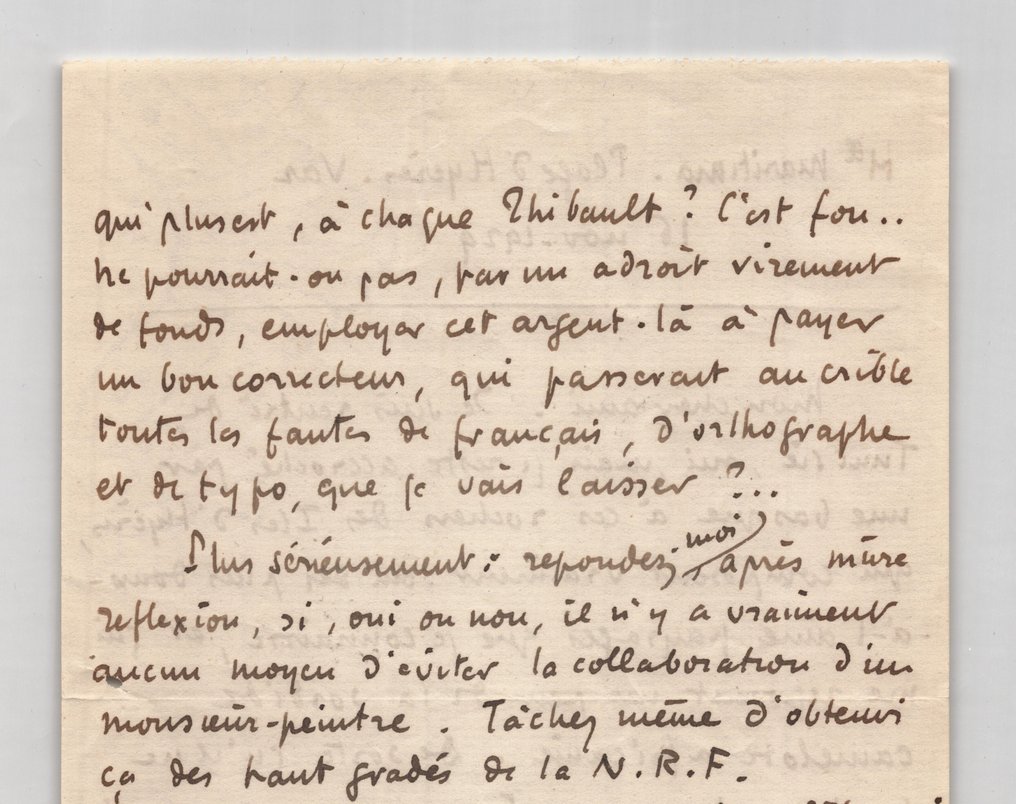 qui plus est, à chaque Thibault ? C'est fou..
ne pourrait-on pas, par un adroit virement
de fonds, employer cet argent-là à payer
un bon correcteur, qui passerait au crible
toutes les fautes de français, d'orthographe
et de typo, que je vais laisser ?...
Plus sérieusement : repondez-moi, après mûre
reflexion, si, oui ou non, il n'y a vraiment
aucun moyen d'éviter la collaboration d'un
monsieur-peintre. Tâchez même d'obtenir
ça des haut gradés de la N.R.F.